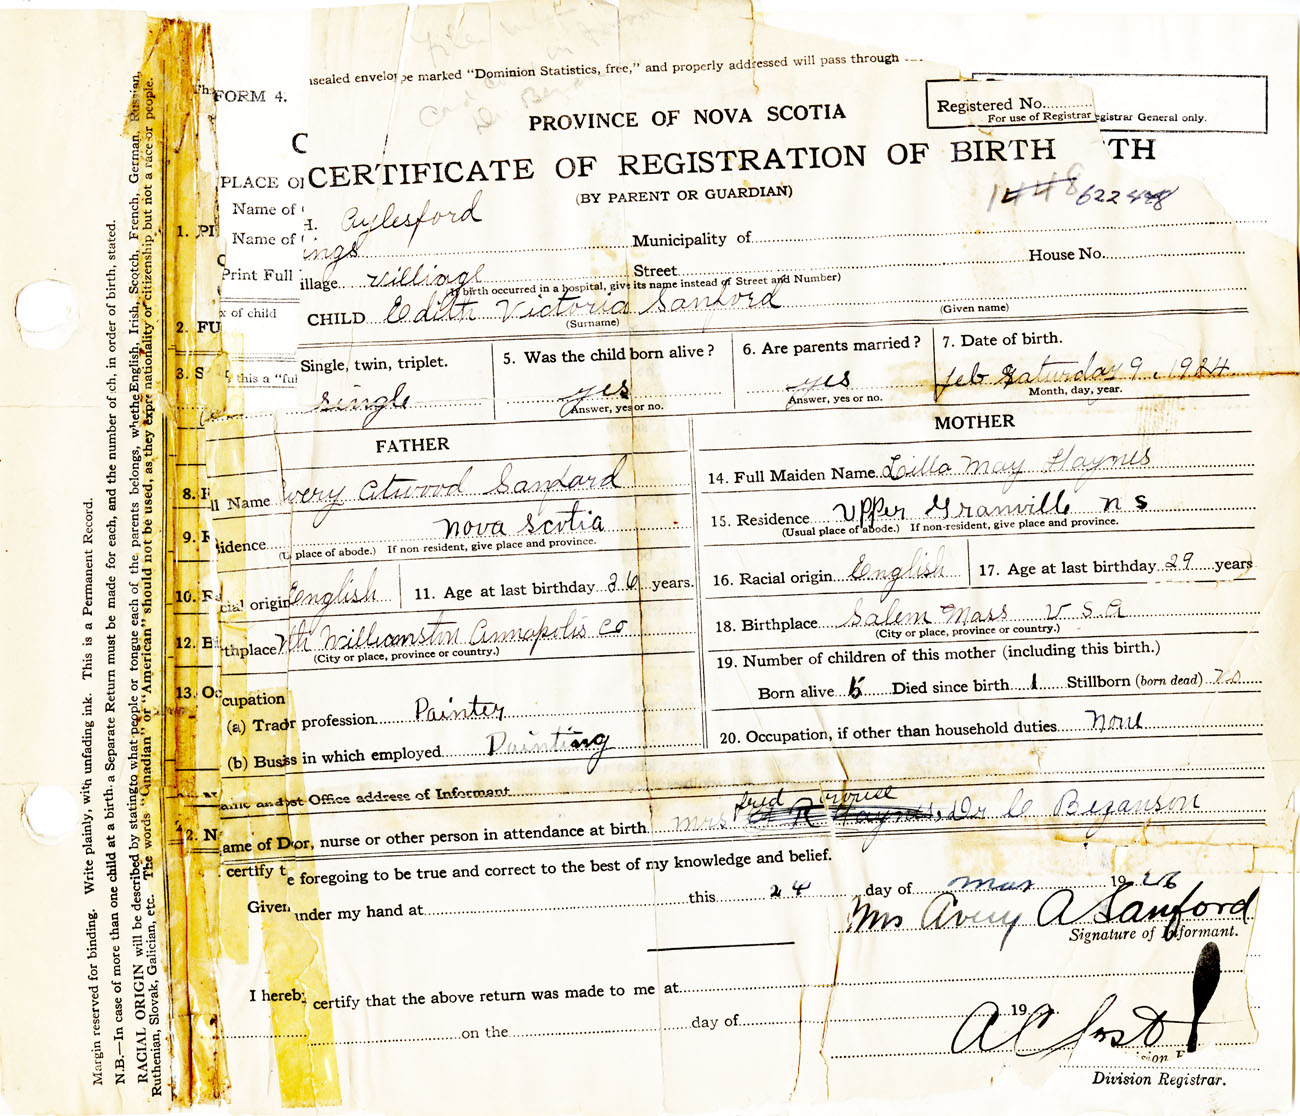 nsealed envelope marked "Dominion Statistics, free," and properly addressed will pass through
FORM 4.
PROVINCE OF NOVA SCOTIA
Registered No.
For use of Registrar egistrar General only.
CERTIFICATE OF REGISTRATION OF BIRTH TH
(BY PARENT OR GUARDIAN)
1448 622448
PLACE OF
Name of H. Aylesford
1. Pl Name of ings Municipality of
Print Full illage village Street House No.
(If birth occurred in a hospital, give its name instead of Street and Number)
x of child
2. FU CHILD Edith Victoria Sanford
(Surname) (Given name)
3. S this a "ful Single, twin, triplet. single
5. Was the child born alive? yes
Answer, yes or no.
6. Are parents married? yes
Answer, yes or no.
7. Date of birth. Feb Saturday 9, 1924
Month, day, year.
FATHER
8. F ll Name very Atwood Sanford
9. R idence Nova Scotia
place of abode.) If non resident, give place and province.
10. Ra cial origin English
11. Age at last birthday 36 years.
12. B thplace Williamston Annapolis Co
(City or place, province or country.)
13. Oc cupation
(a) Trad r profession Painter
(b) Bus s in which employed Painting
MOTHER
14. Full Maiden Name Lilla May Haynes
15. Residence Upper Granville N S
(Usual place of abode.) If non-resident, give place and province.
16. Racial origin English
17. Age at last birthday 29 years
18. Birthplace Salem Mass U.S.A
(City or place, province or country.)
19. Number of children of this mother (including this birth.)
Born alive 5 Died since birth 1 Stillborn (born dead) no
20. Occupation, if other than household duties none
ame and st Office address of Informant
22. N ame of D or, nurse or other person in attendance at birth Mrs Fred Haynes, Dr C Bezanson
certify t e foregoing to be true and correct to the best of my knowledge and belief.
Given under my hand at this 24 day of Mar 1926
Mrs Avery A Sanford
Signature of Informant.
I hereby certify that the above return was made to me at
on the day of 19
Division Registrar.
Margin reserved for binding. Write plainly, with unfading ink. This is a Permanent Record.
N.B.—In case of more than one child at a birth, a Separate Return must be made for each, and the number of ch, in order of birth, stated.
RACIAL ORIGIN will be described by stating to what people or tongue each of the parents belongs, whethe English, Irish, Scotch, French, German, Russian,
Ruthenian, Slovak, Galician, etc. The words "Canadian" or "American" should not be used, as they expre nationality or citizenship but not a race or people.